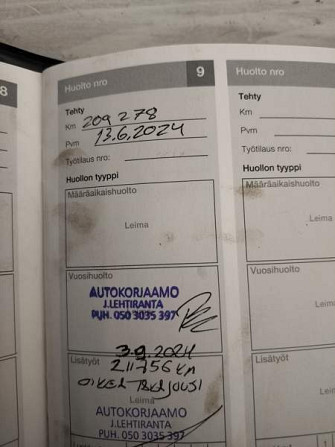 8
Huolto nro 9
Tehty
Km 209 278
Pvm 13.6.2024
Työtilaus nro:
Huollon tyyppi
Määräaikaishuolto
Leima
Vuosihuolto
AUTOKORJAAMO
J.LEHTIRANTA
PUH. 050 3035 397
3.9.2024
Lisätyöt 211756 km
OIKEA
Leima
AUTOKORJAAMO
J.LEHTIRANTA
PUH. 050 3035 397
Huolto nro
Tehty
Km
Pvm
Työtilaus nro:
Huollon tyyppi
Määräaikaishuolto
Leima
Vuosihuolto
Leima
Lisätyöt